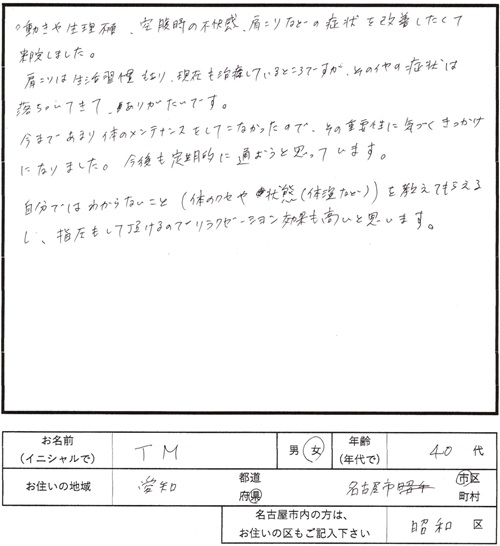 動きや生理痛、空腹時の不快感、肩こりなどの症状を改善したくて
来院しました。
肩こりは生活習慣もあり、現在も治療しているところですが、その他の症状は
落ちついてきて、ありがたいです。
今まであまり体のメンテナンスをしてこなかったので、その重要性に気づくきっかけ
になりました。今後も定期的に通おうと思っています。
自分ではわからないこと(体のクセや状態(体温など))を教えてもらえる
し、指圧もして頂けるのでリラクゼーション効果も高いと思います。
お名前
(イニシャルで)
TM
男 女
年齢
(年代で)
40 代
お住いの地域
愛知
都道
府県
名古屋市
市区
町村
名古屋市内の方は、
お住いの区もご記入下さい
昭和 区